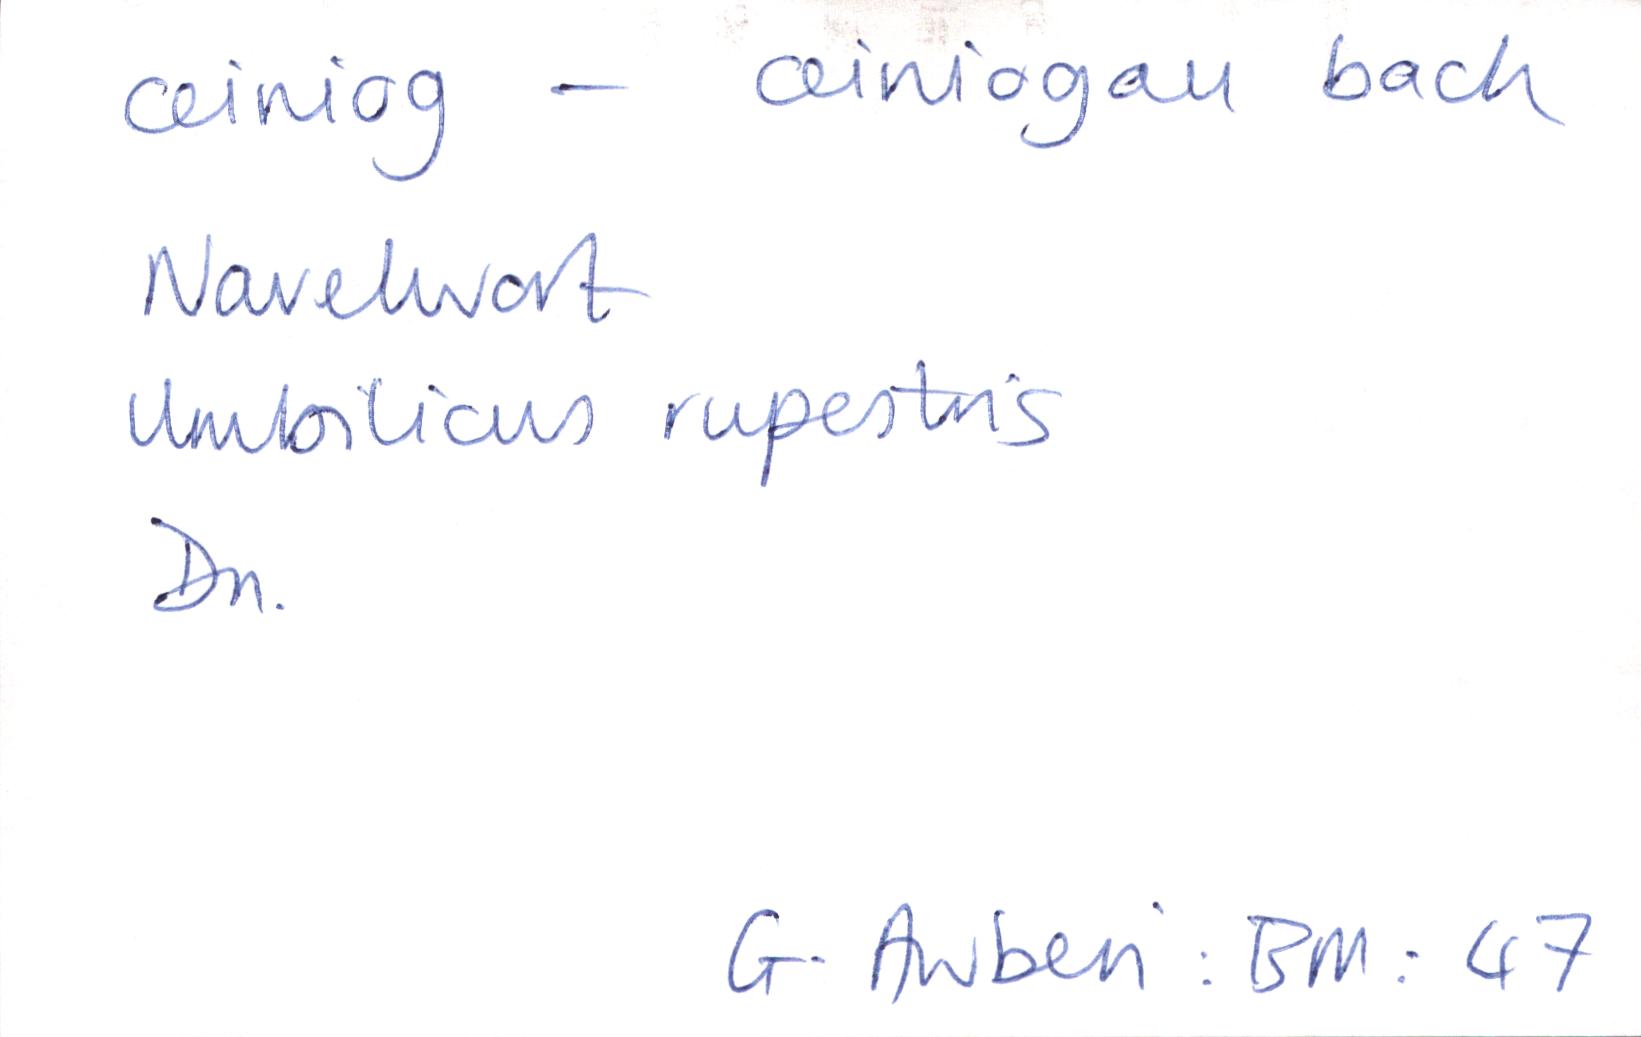 ceiniog – ceiniogau bach
Navelwort
Umbilicus rupestris
Dn.
G. Awberi : BM : 47